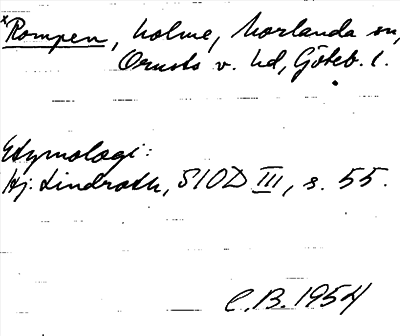 *Rompen, holme, Morlanda sn,
Orusts v. hd, Göteb. l.
Etymologi:
Hj. Lindroth, SIOD III, s. 55.
C.B. 1954